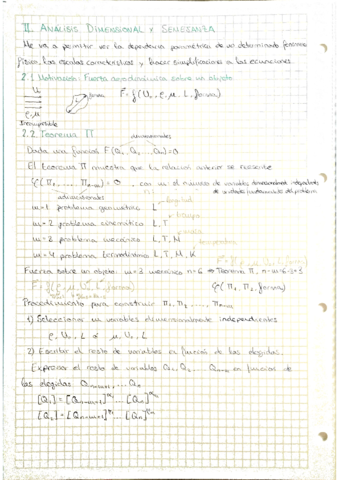 II. ANÁLISIS DIMENSIONAL Y SEMEJANZA
Me va a permitir ver la dependencia paramétrica de un determinado fenómeno
físico, las escalas características y hacer simplificaciones a las ecuaciones.
2.1. Motivación: Fuerza aerodinámica sobre un objeto.
U∞
forma
F = f(U∞, ρ, μ, L, forma)
ρ, μ
Incompresible
2.2. Teorema Π
dimensionales
Dada una función F(Q1, Q2, ... Qn) = 0
El teorema Π muestra que la relación anterior se puede
φ(Π1, ... Πn-m) = 0, con m el número de variables dimensionalmente independientes
adimensionales
longitud
m=1 problema geométrico L
tiempo
m=2 problema cinemático L, T
masa
m=3 problema mecánico L, T, M
temperatura
m=4 problema termodinámico L, T, M, K
Fuerza sobre un objeto: m=3 mecánico n=6 ⇒ Teorema Π, n-m=6-3=3
F = f(ρ, μ, U∞, L, forma)
φ(Π1, Π2, forma)
Procedimiento para construir Π1, Π2, ... Πn-m
1) Seleccionar m variables dimensionalmente independientes
ρ, U∞, L o μ, U∞, L
2) Escribir el resto de variables en función de las elegidas.
Expresar el resto de variables Q1, Q2, ... Qn-m en función de
las elegidas. Qn-m+1, ... Qn
[Q1] = [Qn-m+1]^α1 ... [Qn]^αm
[Q2] = [Qn-m+1]^ ... [Qn]^